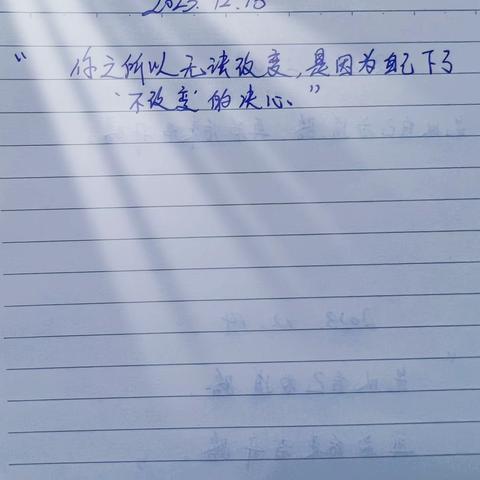 2023.12.18
“ 你之所以无法改变,是因为自己下了
‘不改变’的决心。”